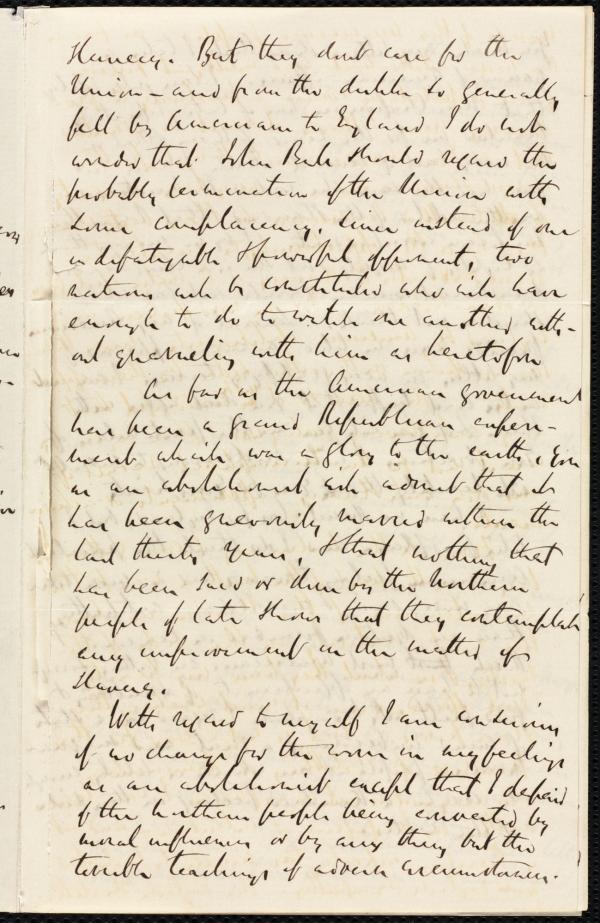 Slavery. But they dont care for the
Union – and from the dislike so generally
felt by Americans to England I do not
wonder that John Bull should regard the
probably termination of the Union with
some complacency, since instead of one
indefatigable & powerful opponent, two
nations will be constituted who will have
enough to do to watch one another with-
out quarreling with him as heretofore
As far as the American government
has been a grand Republican experi-
ment which was a glory to the earth, you
as an abolitionist will admit that it
has been grievously marred within the
last thirty years, & that nothing that
has been said or done by the Northern
people of late shows that they contemplate
any improvement in the matter of
Slavery.
With regard to myself I am conscious
of no change for the worse in my feelings
as an abolitionist except that I despair
of the Northern people being converted by
moral influences or by any thing but the
terrible teachings of adverse circumstances.